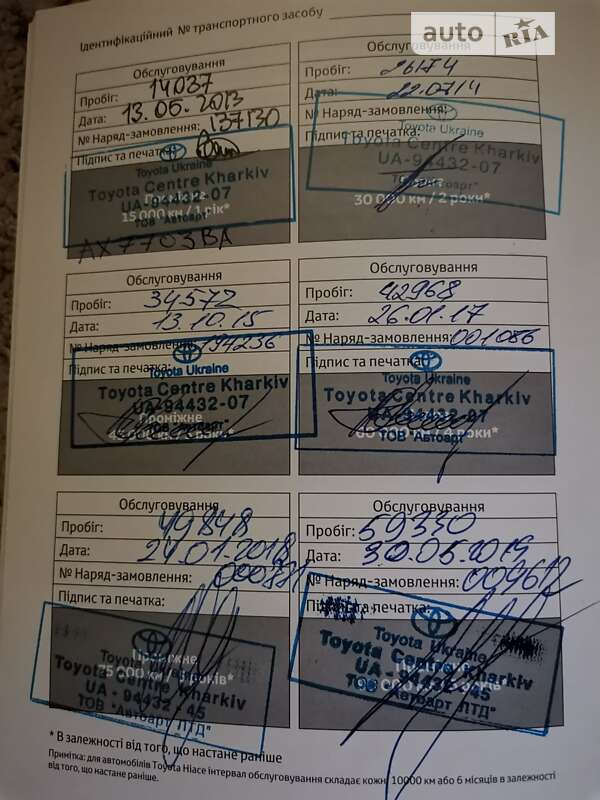 Ідентифікаційний № транспортного засобу
auto RIA
Обслуговування
Пробіг: 14037
Дата: 13.05.2013
№ Наряд-замовлення: 137130
Підпис та печатка:
Toyota Ukraine
Toyota Centre Kharkiv
UA-94432-07
15 000 км / 1 рік*
ТОВ "Автоарт"
АХ7703ВА
Обслуговування
Пробіг: 26174
Дата: 22.07.14
№ Наряд-замовлення:
Підпис та печатка:
Toyota Ukraine
Toyota Centre Kharkiv
UA-94432-07
30 000 км / 2 роки*
Обслуговування
Пробіг: 34572
Дата: 13.10.15
№ Наряд-замовлення: 194236
Підпис та печатка:
Toyota Ukraine
Toyota Centre Kharkiv
UA-94432-07
Проміжне
ТОВ "Автоарт"
Обслуговування
Пробіг: 42968
Дата: 26.01.17
№ Наряд-замовлення: 001086
Підпис та печатка:
Toyota Ukraine
Toyota Centre Kharkiv
UA-94432-07
60 000 км / 4 роки*
ТОВ "Автоарт"
Обслуговування
Пробіг: 49848
Дата: 24.01.2018
№ Наряд-замовлення:
Підпис та печатка:
Toyota Ukraine
Проміжне
Toyota Centre Kharkiv
UA - 94432 - 45
ТОВ "Автоарт ЛТД"
Обслуговування
Пробіг: 59330
Дата: 30.05.2019
№ Наряд-замовлення: 009612
Підпис та печатка:
Toyota Ukraine
Toyota Centre Kharkiv
UA - 94432 - 45
ТОВ "Автоарт ЛТД"
* В залежності від того, що настане раніше
Примітка: для автомобілів Toyota Hiace інтервал обслуговування складає кожні 10000 км або 6 місяців в залежності
від того, що настане раніше.